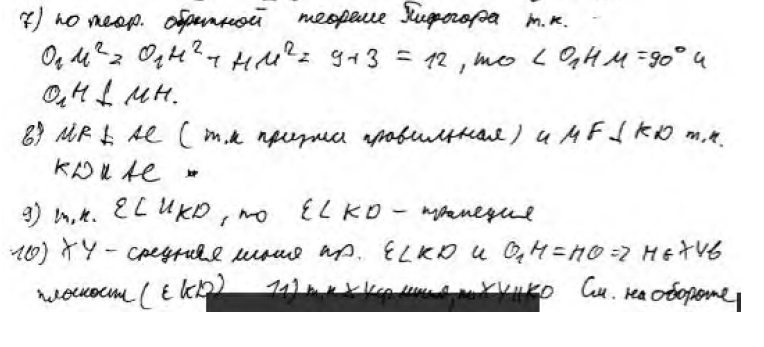 7) по теор. обратной теореме Пифагора т.к.
O₁M² = O₁H² + HM² = 9+3 = 12, то ∠ O₁HM = 90° и
O₁H ⊥ MH.
8) MF ⊥ AC (т.к призма правильная) и MF ⊥ KD т.к.
KD ∥ AC
9) т.к. EL ∥ KD, то ELKD - трапеция
10) XY - средняя линия тр. ELKD и O₁H = HO => H ∈ XY в
плоскости (EKD) 11) т.к XY ср линия, то XY ∥ KD См. на обороте